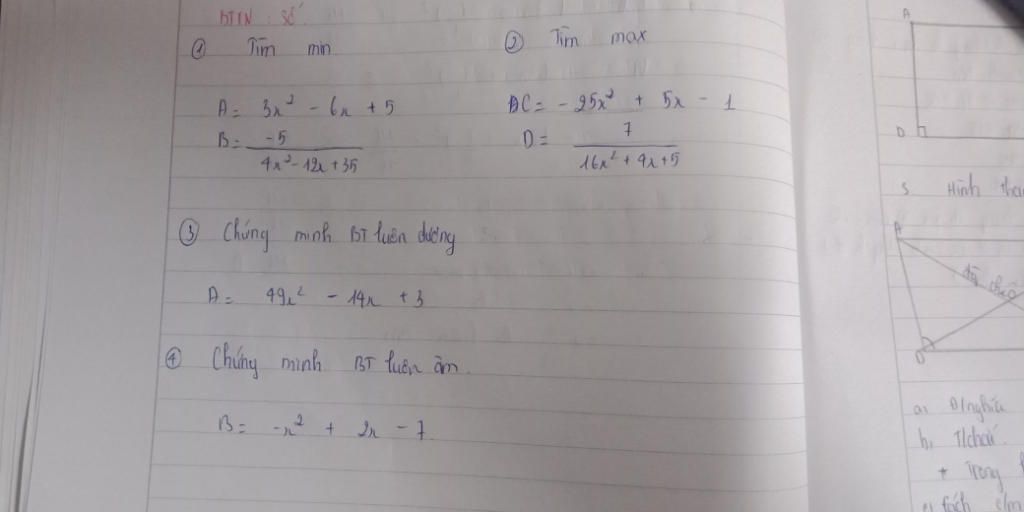 BTVN : Số
① Tìm min
A = 3x² - 6x + 5
B = -5 / 4x² - 12x + 35
② Tìm max
C = - 25x² + 5x - 1
D = 7 / 16x² + 4x + 5
③ Chứng minh BT luôn dương
A = 49x² - 14x + 3
④ Chứng minh BT luôn âm
B = -x² + 2x - 7
A
D
5 Hình
A
D
a, Đ/nghĩa
b, T/chất
+ Trong